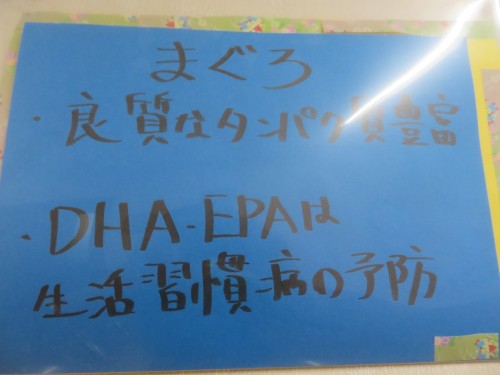 まぐろ
・良質なタンパク質豊富
・DHA-EPAは
生活習慣病の予防